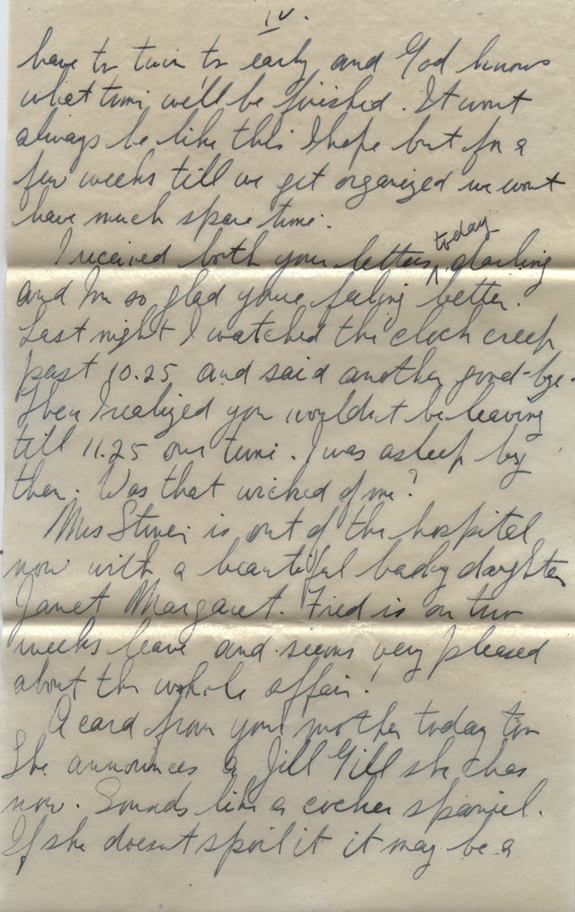 IV.
have to turn to early and God knows
what time we'll be finished. It wont
always be like this I hope but for a
few weeks till we get organized we wont
have much spare time.
today
I received both your letters, darling
and I'm so glad youre feeling better.
Last night I watched the clock creep
past 10.25 and said another good-bye.
Then I realized you wouldnt be leaving
till 11.25 our time. I was asleep by
then. Was that wicked of me?
Mrs is out of the hospital
now with a beautiful baby daughter
Janet Margaret. Fred is on two
weeks leave and seems very pleased
about the whole affair!
A card from your mother today too
She announces a Jill Gill she has
now. Sounds like a cocker spaniel.
If she doesnt spoil it it may be a